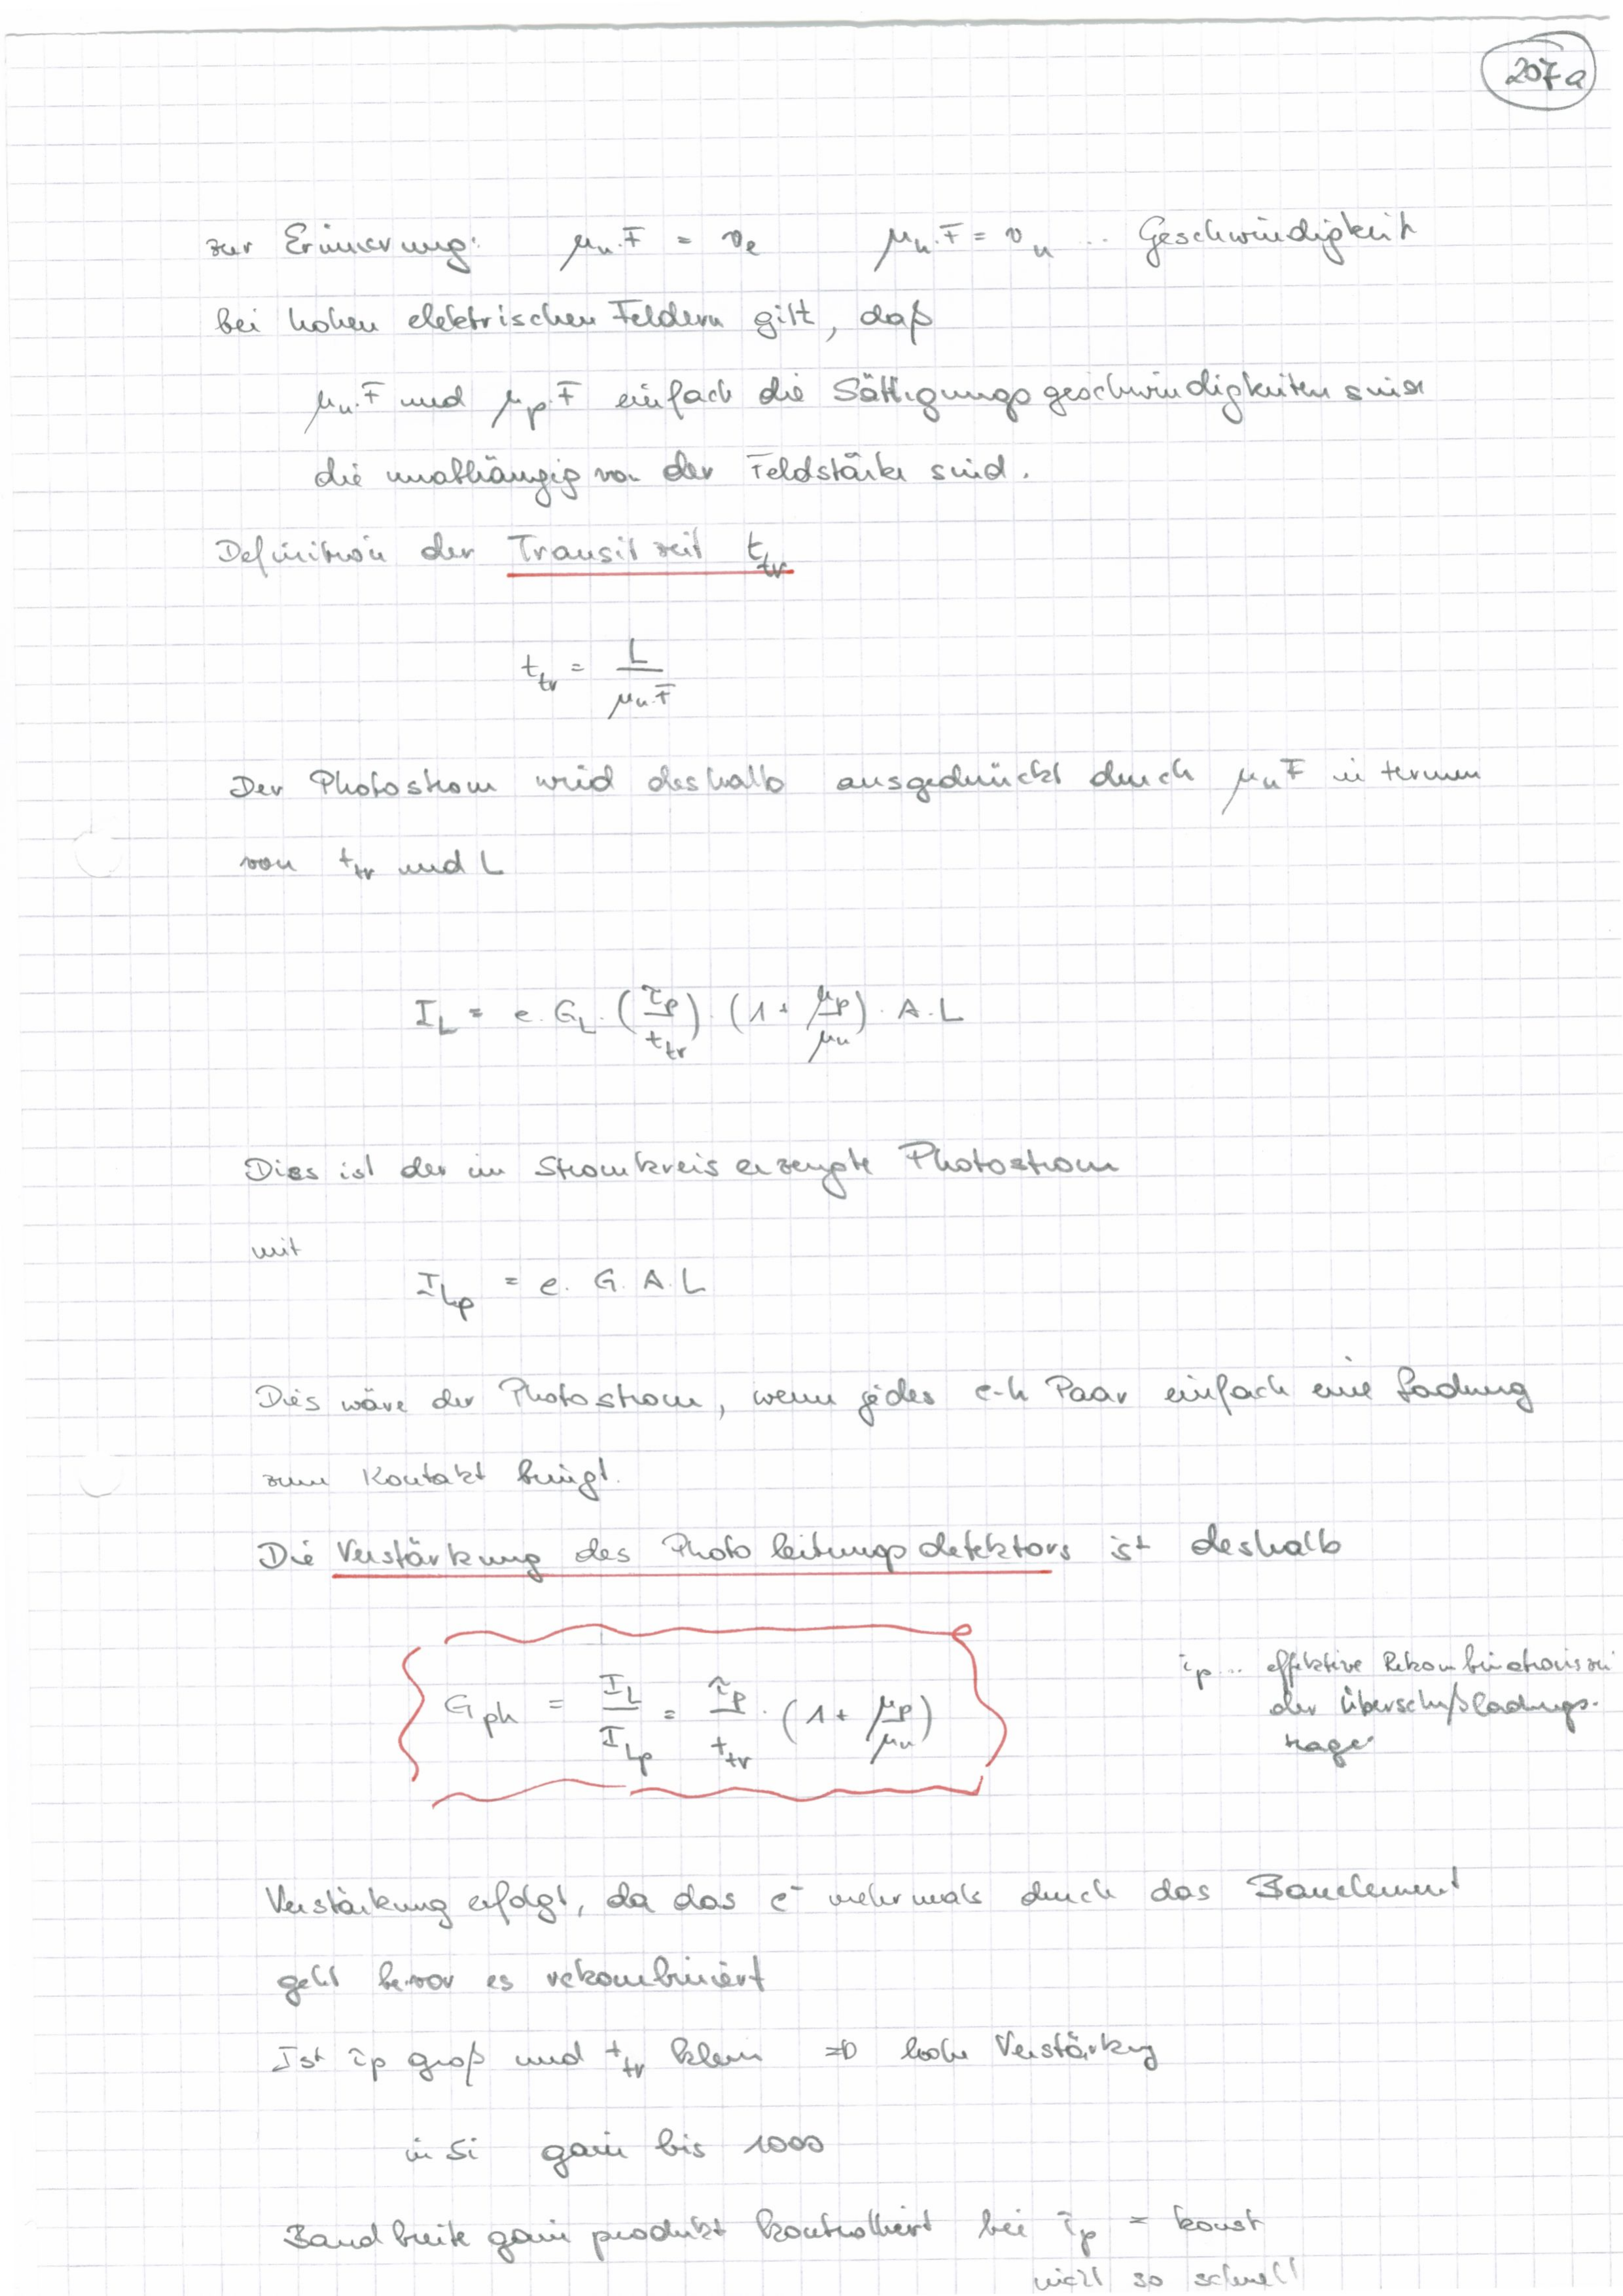 207a
zur Erinnerung: μn.F = ve μh.F = vh ... Geschwindigkeit
bei hohen elektrischen Feldern gilt, daß
μn.F und μp.F einfach die Sättigungsgeschwindigkeiten sind
die unabhängig von der Feldstärke sind.
Definition der Transitzeit ttr
ttr = L / μn.F
Der Photostrom wird deshalb ausgedrückt durch μnF in termen
von ttr und L
IL = e. GL. (τp/ttr). (1 + μp/μn). A. L
Dies ist der im Stromkreis erzeugte Photostrom
mit
ILp = e. G. A. L
Dies wäre der Photostrom, wenn jedes e-h Paar einfach eine Ladung
zum Kontakt bringt.
Die Verstärkung des Photoleitungsdetektors ist deshalb
Gph = IL/ILp = τp/ttr . (1 + μp/μn)
τp... effektive Rekombinationszei
der Überschußladungs-
träger
Verstärkung erfolgt, da das e⁻ mehrmals durch das Bauelement
geht bevor es rekombiniert
Ist τp groß und ttr klein ⇒ hohe Verstärkung
in Si gain bis 1000
Bandbreite gain produkt kontrolliert bei τp = konst
nicht so schnell